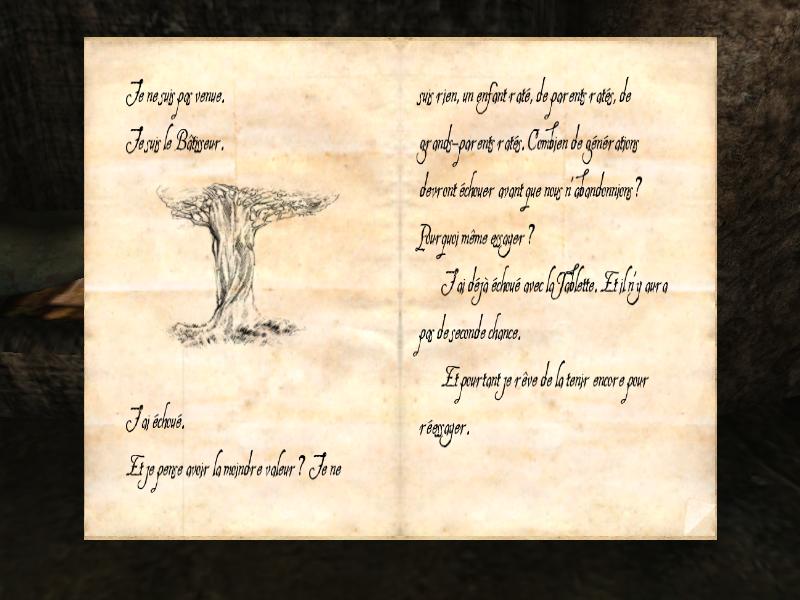 Je ne suis pas venue.
Je suis le Bâtisseur.
J'ai échoué.
Et je pense avoir la moindre valeur ? Je ne
suis rien, un enfant raté, de parents ratés, de
grands-parents ratés. Combien de générations
devront échouer avant que nous n'abandonnions ?
Pourquoi même essayer ?
J'ai déjà échoué avec la Tablette. Et il n'y aura
pas de seconde chance.
Et pourtant je rêve de la tenir encore pour
réessayer.